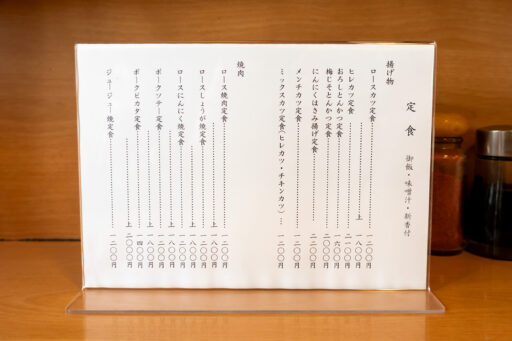 定食 御飯・味噌汁・新香付
揚げ物
ロースカツ定食……一二〇〇円
上……一八〇〇円
ヒレカツ定食……
おろしとんかつ定食……一六〇〇円
梅じそとんかつ定食……
にんにくはさみ揚げ定食……
メンチカツ定食……
ミックスカツ定食(ヒレカツ・チキンカツ)…
焼肉
ロース焼肉定食……一二〇〇円
上……一八〇〇円
ロースしょうが焼定食……一二〇〇円
上……一八〇〇円
ロースにんにく焼定食……一二〇〇円
上……一八〇〇円
ポークソテー定食……一二〇〇円
上……一八〇〇円
ポークピカタ定食……一四〇〇円
上……二〇〇〇円
ジュージュー焼定食……一二〇〇円